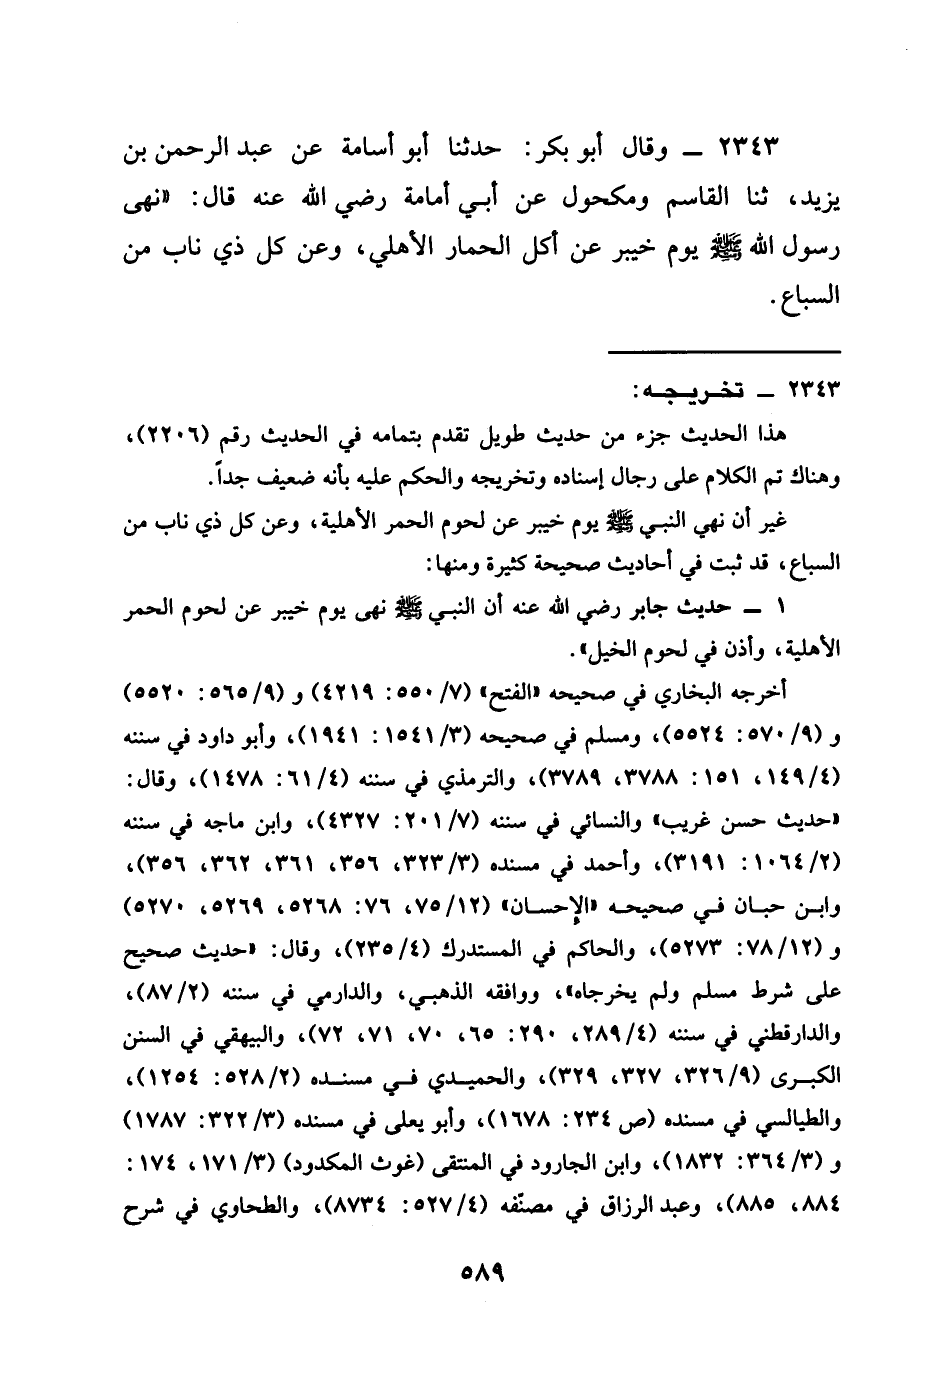 ٢٣٤٣ ــ وقال أبو بكر: حدثنا أبو أسامة عن عبد الرحمن بن
يزيد، ثنا القاسم ومكحول عن أبـي أمامة رضي الله عنه قال: «نهى
رسول الله ﷺ يوم خيبر عن أكل الحمار الأهلي، وعن كل ذي ناب من
السباع.
٢٣٤٣ ــ تخـريـجـه:
هذا الحديث جزء من حديث طويل تقدم بتمامه في الحديث رقم (٢٢٠٦)،
وهناك تم الكلام على رجال إسناده وتخريجه والحكم عليه بأنه ضعيف جداً.
غير أن نهي النبـي ﷺ يوم خيبر عن لحوم الحمر الأهلية، وعن كل ذي ناب من
السباع، قد ثبت في أحاديث صحيحة كثيرة ومنها:
١ ــ حديث جابر رضي الله عنه أن النبـي ﷺ نهى يوم خيبر عن لحوم الحمر
الأهلية، وأذن في لحوم الخيل».
أخرجه البخاري في صحيحه «الفتح» (٧/ ٥٥٠: ٤٢١٩) و (٩/ ٥٦٥: ٥٥٢٠)
و (٩/ ٥٧٠: ٥٥٢٤)، ومسلم في صحيحه (٣/ ١٥٤١: ١٩٤١)، وأبو داود في سننه
(٤/ ١٤٩، ١٥١: ٣٧٨٨، ٣٧٨٩)، والترمذي في سننه (٤/ ٦١: ١٤٧٨)، وقال:
«حديث حسن غريب» والنسائي في سننه (٧/ ٢٠١: ٤٣٢٧)، وابن ماجه في سننه
(٢/ ١٠٦٤: ٣١٩١)، وأحمد في مسنده (٣/ ٣٢٣، ٣٥٦، ٣٦١، ٣٦٢، ٣٥٦)،
وابـن حبـان فـي صحيحـه «الإحسـان» (١٢/ ٧٥، ٧٦: ٥٢٦٨، ٥٢٦٩، ٥٢٧٠)
و (١٢/ ٧٨: ٥٢٧٣)، والحاكم في المستدرك (٤/ ٢٣٥)، وقال: «حديث صحيح
على شرط مسلم ولم يخرجاه»، ووافقه الذهبـي، والدارمي في سننه (٢/ ٨٧)،
والدارقطني في سننه (٤/ ٢٨٩، ٢٩٠: ٦٥، ٧٠، ٧١، ٧٢)، والبيهقي في السنن
الكبـرى (٩/ ٣٢٦، ٣٢٧، ٣٢٩)، والحميـدي فـي مسنـده (٢/ ٥٢٨: ١٢٥٤)،
والطيالسي في مسنده (ص ٢٣٤: ١٦٧٨)، وأبو يعلى في مسنده (٣/ ٣٢٢: ١٧٨٧)
و (٣/ ٣٦٤: ١٨٣٢)، وابن الجارود في المنتقى (غوث المكدود) (٣/ ١٧١، ١٧٤:
٨٨٤، ٨٨٥)، وعبد الرزاق في مصنّفه (٤/ ٥٢٧: ٨٧٣٤)، والطحاوي في شرح
٥٨٩